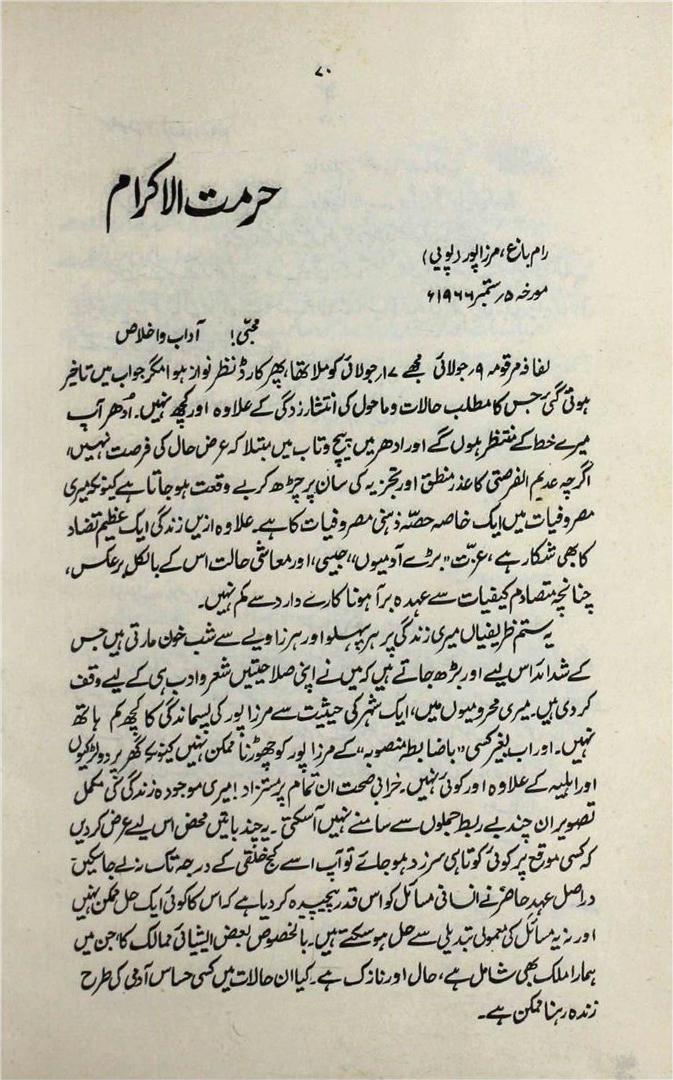 ۷۰
حرمت الاکرام
رام باغ، مرزا پور (یوپی)
مورخہ ۵ ستمبر ۱۹۶۶ء
محبّی! آداب و اخلاص
لفافہ مرقومہ ۹؍ جولائی مجھے ۱۷؍ جولائی کو ملا تھا، پھر کارڈ نظر نواز ہوا مگر جواب میں تاخیر
ہوتی گئی جس کا مطلب حالات و ماحول کی انتشار زدگی کے علاوہ اور کچھ نہیں۔ اُدھر آپ
میرے خط کے منتظر ہوں گے اور ادھر میں پیچ و تاب میں مبتلا کہ عرض حال کی فرصت نہیں،
اگرچہ عدیم الفرصتی کا عذر منطق اور تجزیہ کی سان پر چڑھ کر بے وقعت ہو جاتا ہے کیونکہ میری
مصروفیات میں ایک خاصہ حصّہ ذہنی مصروفیات کا ہے۔ علاوہ ازیں زندگی ایک عظیم تضاد
کا بھی شکار ہے، عزت "بڑے آدمیوں" جیسی، اور معاشی حالت اس کے بالکل برعکس،
چنانچہ متصادم کیفیات سے عہدہ برآ ہونا کارے دارد سے کم نہیں۔
یہ ستم ظریفیاں میری زندگی پر ہر پہلو اور ہر زاویے سے شب خون مارتی ہیں جس
کے شدائد اس لیے اور بڑھ جاتے ہیں کہ میں نے اپنی صلاحیتیں شعر و ادب ہی کے لیے وقف
کر دی ہیں۔ میری محرومیوں میں، ایک شہر کی حیثیت سے مرزا پور کی پسماندگی کا کچھ کم ہاتھ
نہیں۔ اور اب بغیر کسی "باضابطہ منصوبہ" کے مرزا پور کو چھوڑنا ممکن نہیں کیونکہ گھر پر دو لڑکیوں
اور اہلیہ کے علاوہ اور کوئی نہیں۔ خرابیٔ صحت ان تمام پر مستزاد! میری موجودہ زندگی کی مکمل
تصویر ان چند بے ربط جملوں سے سامنے نہیں آ سکتی۔ یہ چند باتیں محض اس لیے عرض کر دیں
کہ کسی موقع پر کوئی کوتاہی سرزد ہو جائے تو آپ اسے کج خلقی کے درجہ تک نہ لے جا سکیں
دراصل عہد حاضر نے انسانی مسائل کو اس قدر پیچیدہ کر دیا ہے کہ اس کا کوئی ایک حل ممکن نہیں
اور نہ یہ مسائل کی معمولی تبدیلی سے حل ہو سکتے ہیں۔ بالخصوص بعض ایشیائی ممالک کا، جن میں
ہمارا ملک بھی شامل ہے، حال اور نازک ہے۔ کیا ان حالات میں کسی حساس آدمی کی طرح
زندہ رہنا ممکن ہے۔